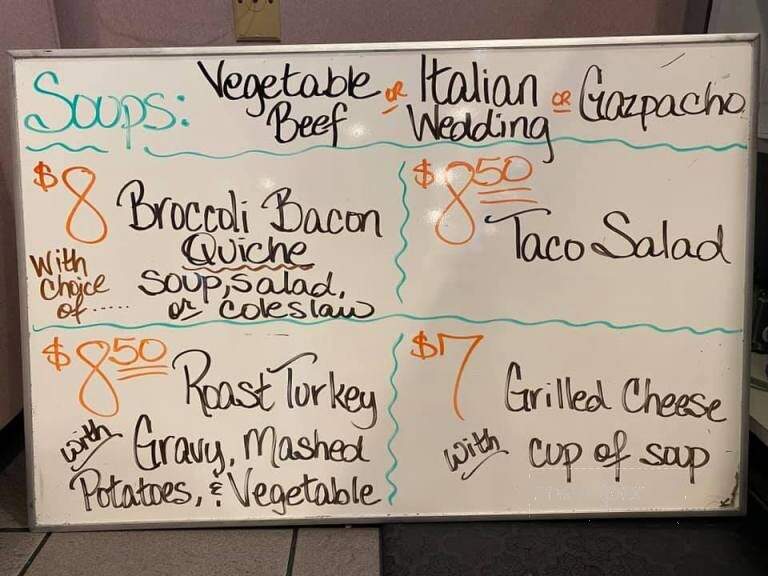 Soups: Vegetable Beef or Italian Wedding or Gazpacho
$8 Broccoli Bacon
Quiche
With choice of ..... soup, salad, or coleslaw
$8 50
Taco Salad
$8 50 Roast Turkey
with Gravy, Mashed
Potatoes, & Vegetable
$7 Grilled Cheese
with cup of soup